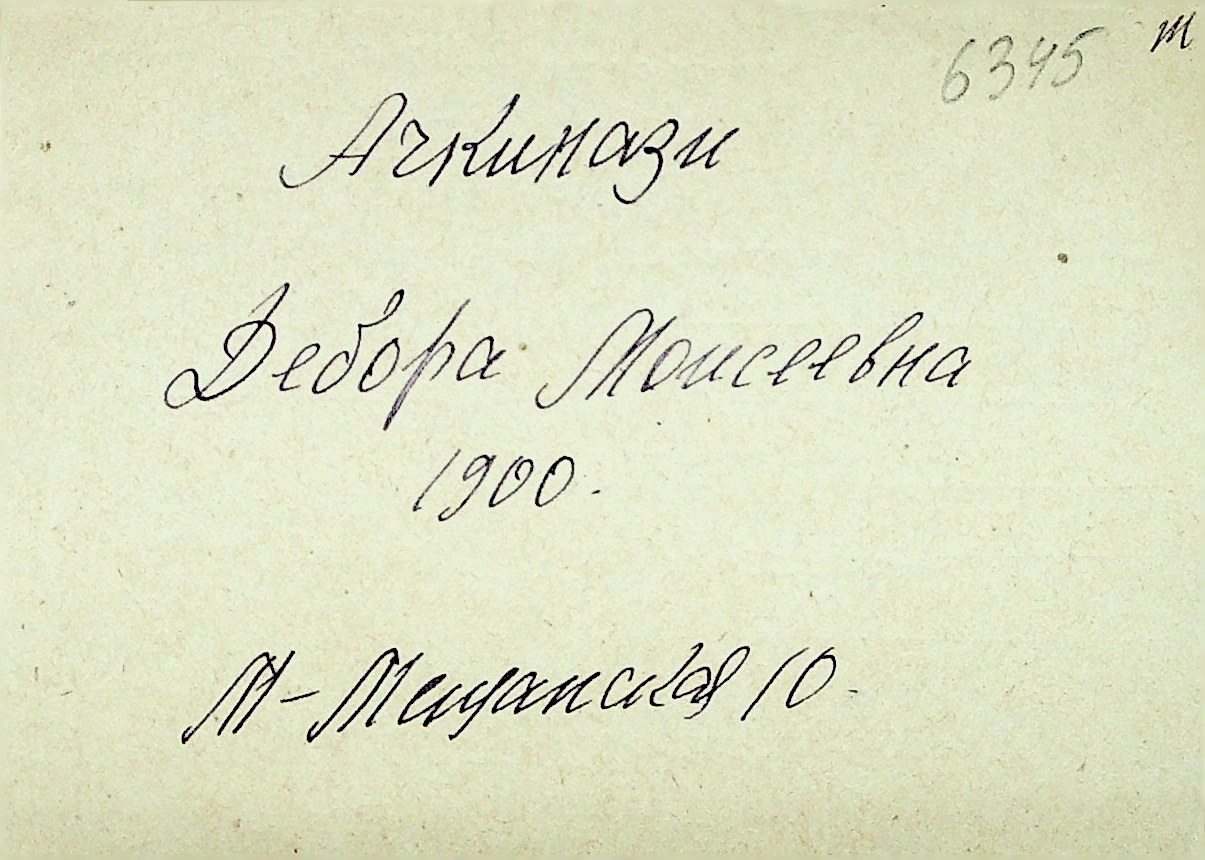 6345 т
Ачкинази
Дебора Моисеевна
1900.
М-Мещанская 10.